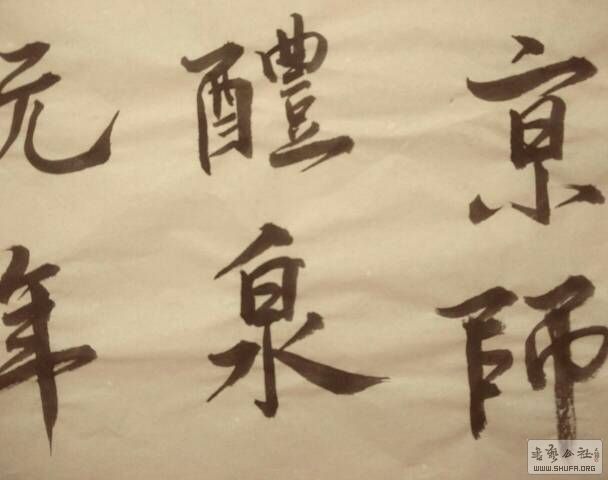 京師
醴泉
元年
書藝公社
WWW.SHUFA.ORG